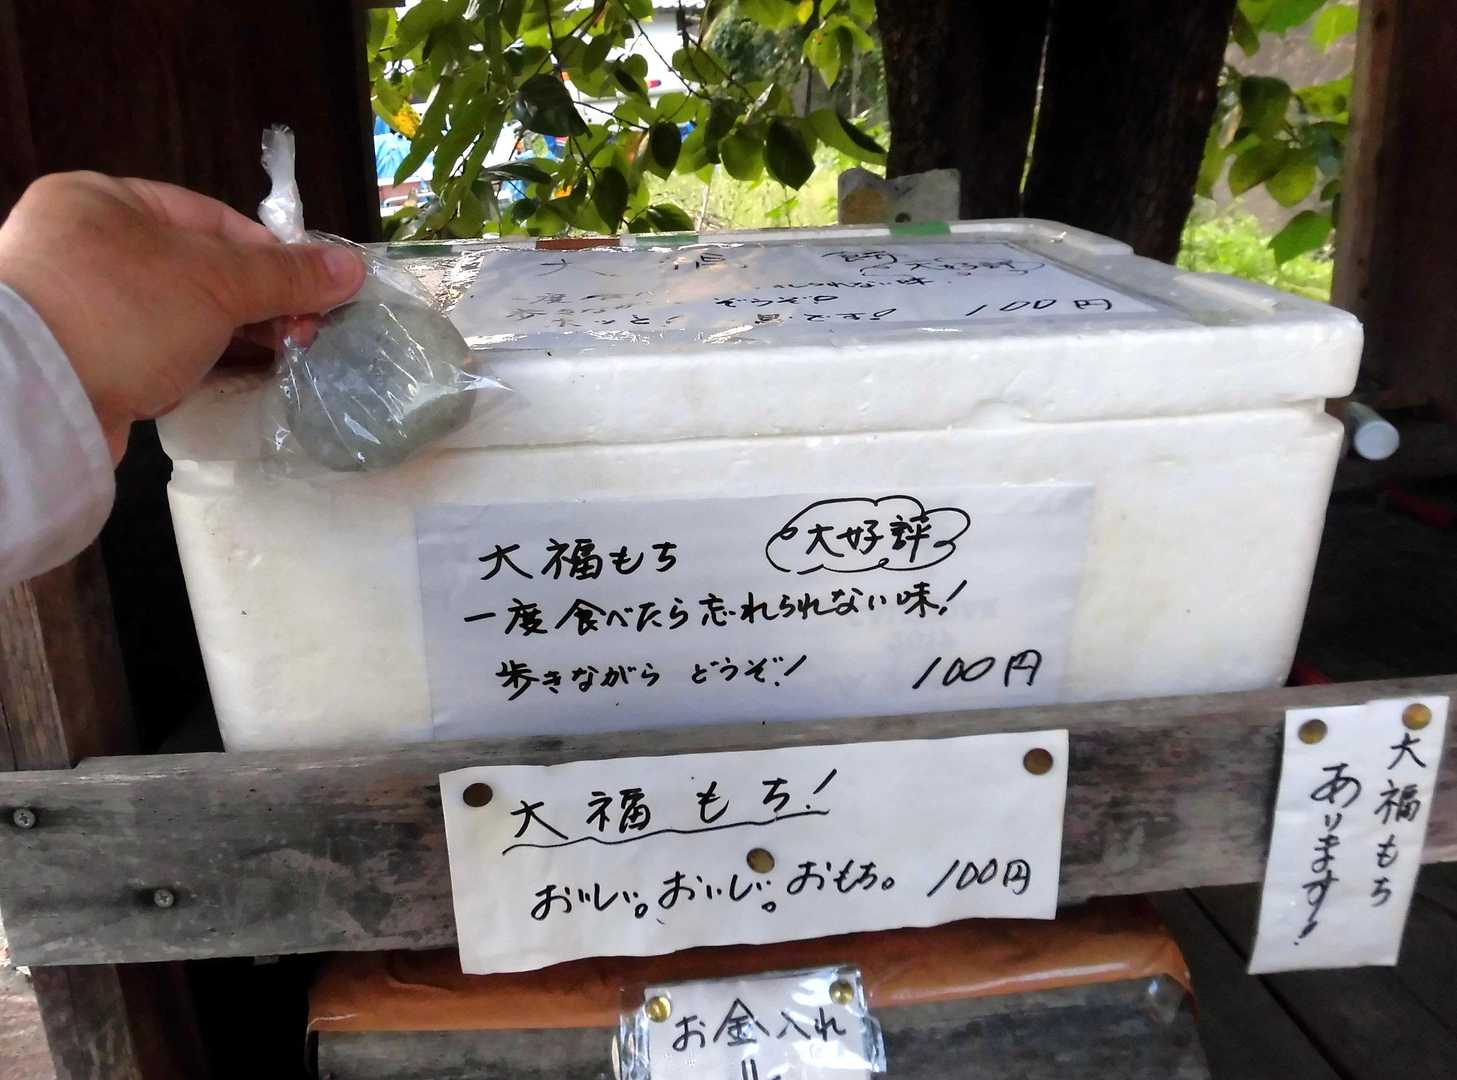 大福
大好評
れられない味
どうぞ!
100円
大福もち
大好評
一度食べたら忘れられない味!
歩きながら どうぞ!
100円
大福もち!
おいしい。おいしい。おもち。 100円
大福もち
あります!
お金入れ